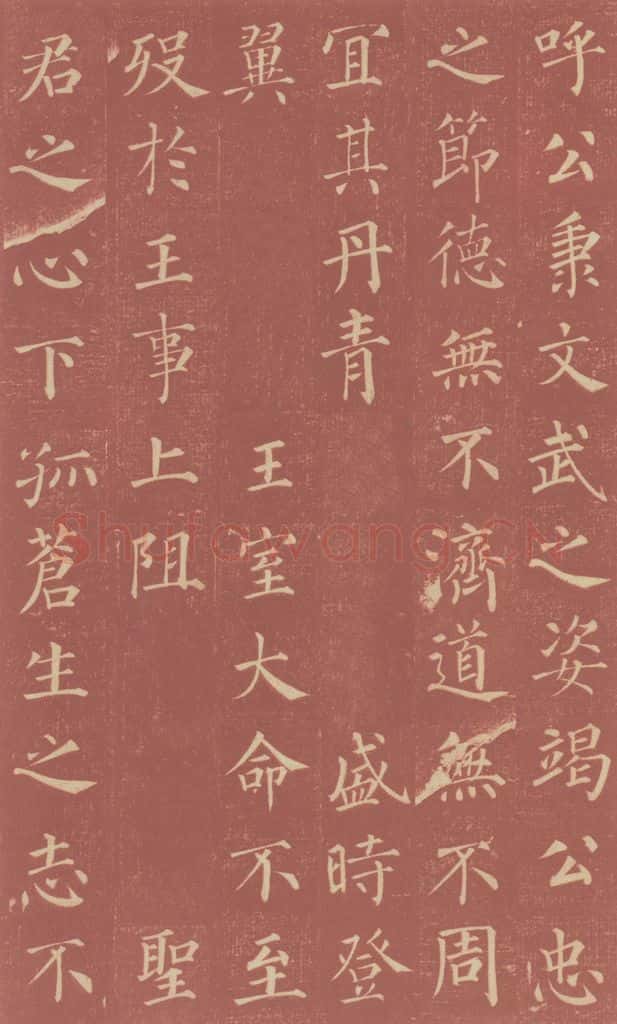 呼公秉文武之姿竭公忠
之節德無不濟道無不周
宜其丹青 盛時登
翼 王室大命不至
歿於王事上阻 聖
君之心下孤蒼生之志不
Shufawang.CN